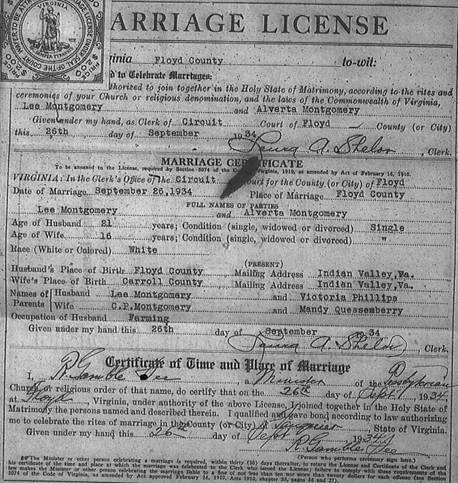 MARRIAGE LICENSE
VIRGINIA
Virginia Floyd County to-wit:
d to Celebrate Marriages:
thorized to join together in the Holy State of Matrimony, according to the rites and
ceremonies of your Church or religious denomination, and the laws of the Commonwealth of Virginia,
Lee Montgomery and Alverta Montgomery
Given under my hand, as Clerk of Circuit Court of Floyd County (or City)
this 26th day of September 1934
Clerk.
MARRIAGE CERTIFICATE
VIRGINIA: In the Clerk's Office of The Circuit Court for the County (or City) of Floyd
Date of Marriage September 26,1934 Place of Marriage Floyd County
FULL NAMES OF PARTIES
Lee Montgomery and Alverta Montgomery
Age of Husband 21 years; Condition (single, widowed or divorced) Single
Age of Wife 16 years; Condition (single, widowed or divorced) "
Race (White or Colored) White
(PRESENT)
Husband's Place of Birth Floyd County Mailing Address Indian Valley,Va.
Wife's Place of Birth Carroll County Mailing Address Indian Valley,Va.
Names of Parents Husband Lee Montgomery and Victoria Phillips
Wife C.P.Montgomery and Mandy Quessemberry
Occupation of Husband Farming
Given under my hand this 26th day of September 1934
Clerk.
Certificate of Time and Place of Marriage
I, R. Gamble See a Minister of the Presbyterian
Church, or religious order of that name, do certify that on the 26th day of Sept, 1934,
at Floyd, Virginia, under authority of the above License, I joined together in the Holy State of
Matrimony the persons named and described therein. I qualified and gave bond according to law authorizing
me to celebrate the rites of marriage in the County (or City) of State of Virginia.
Given under my hand this 26th day of Sept 1934
R. Gamble See